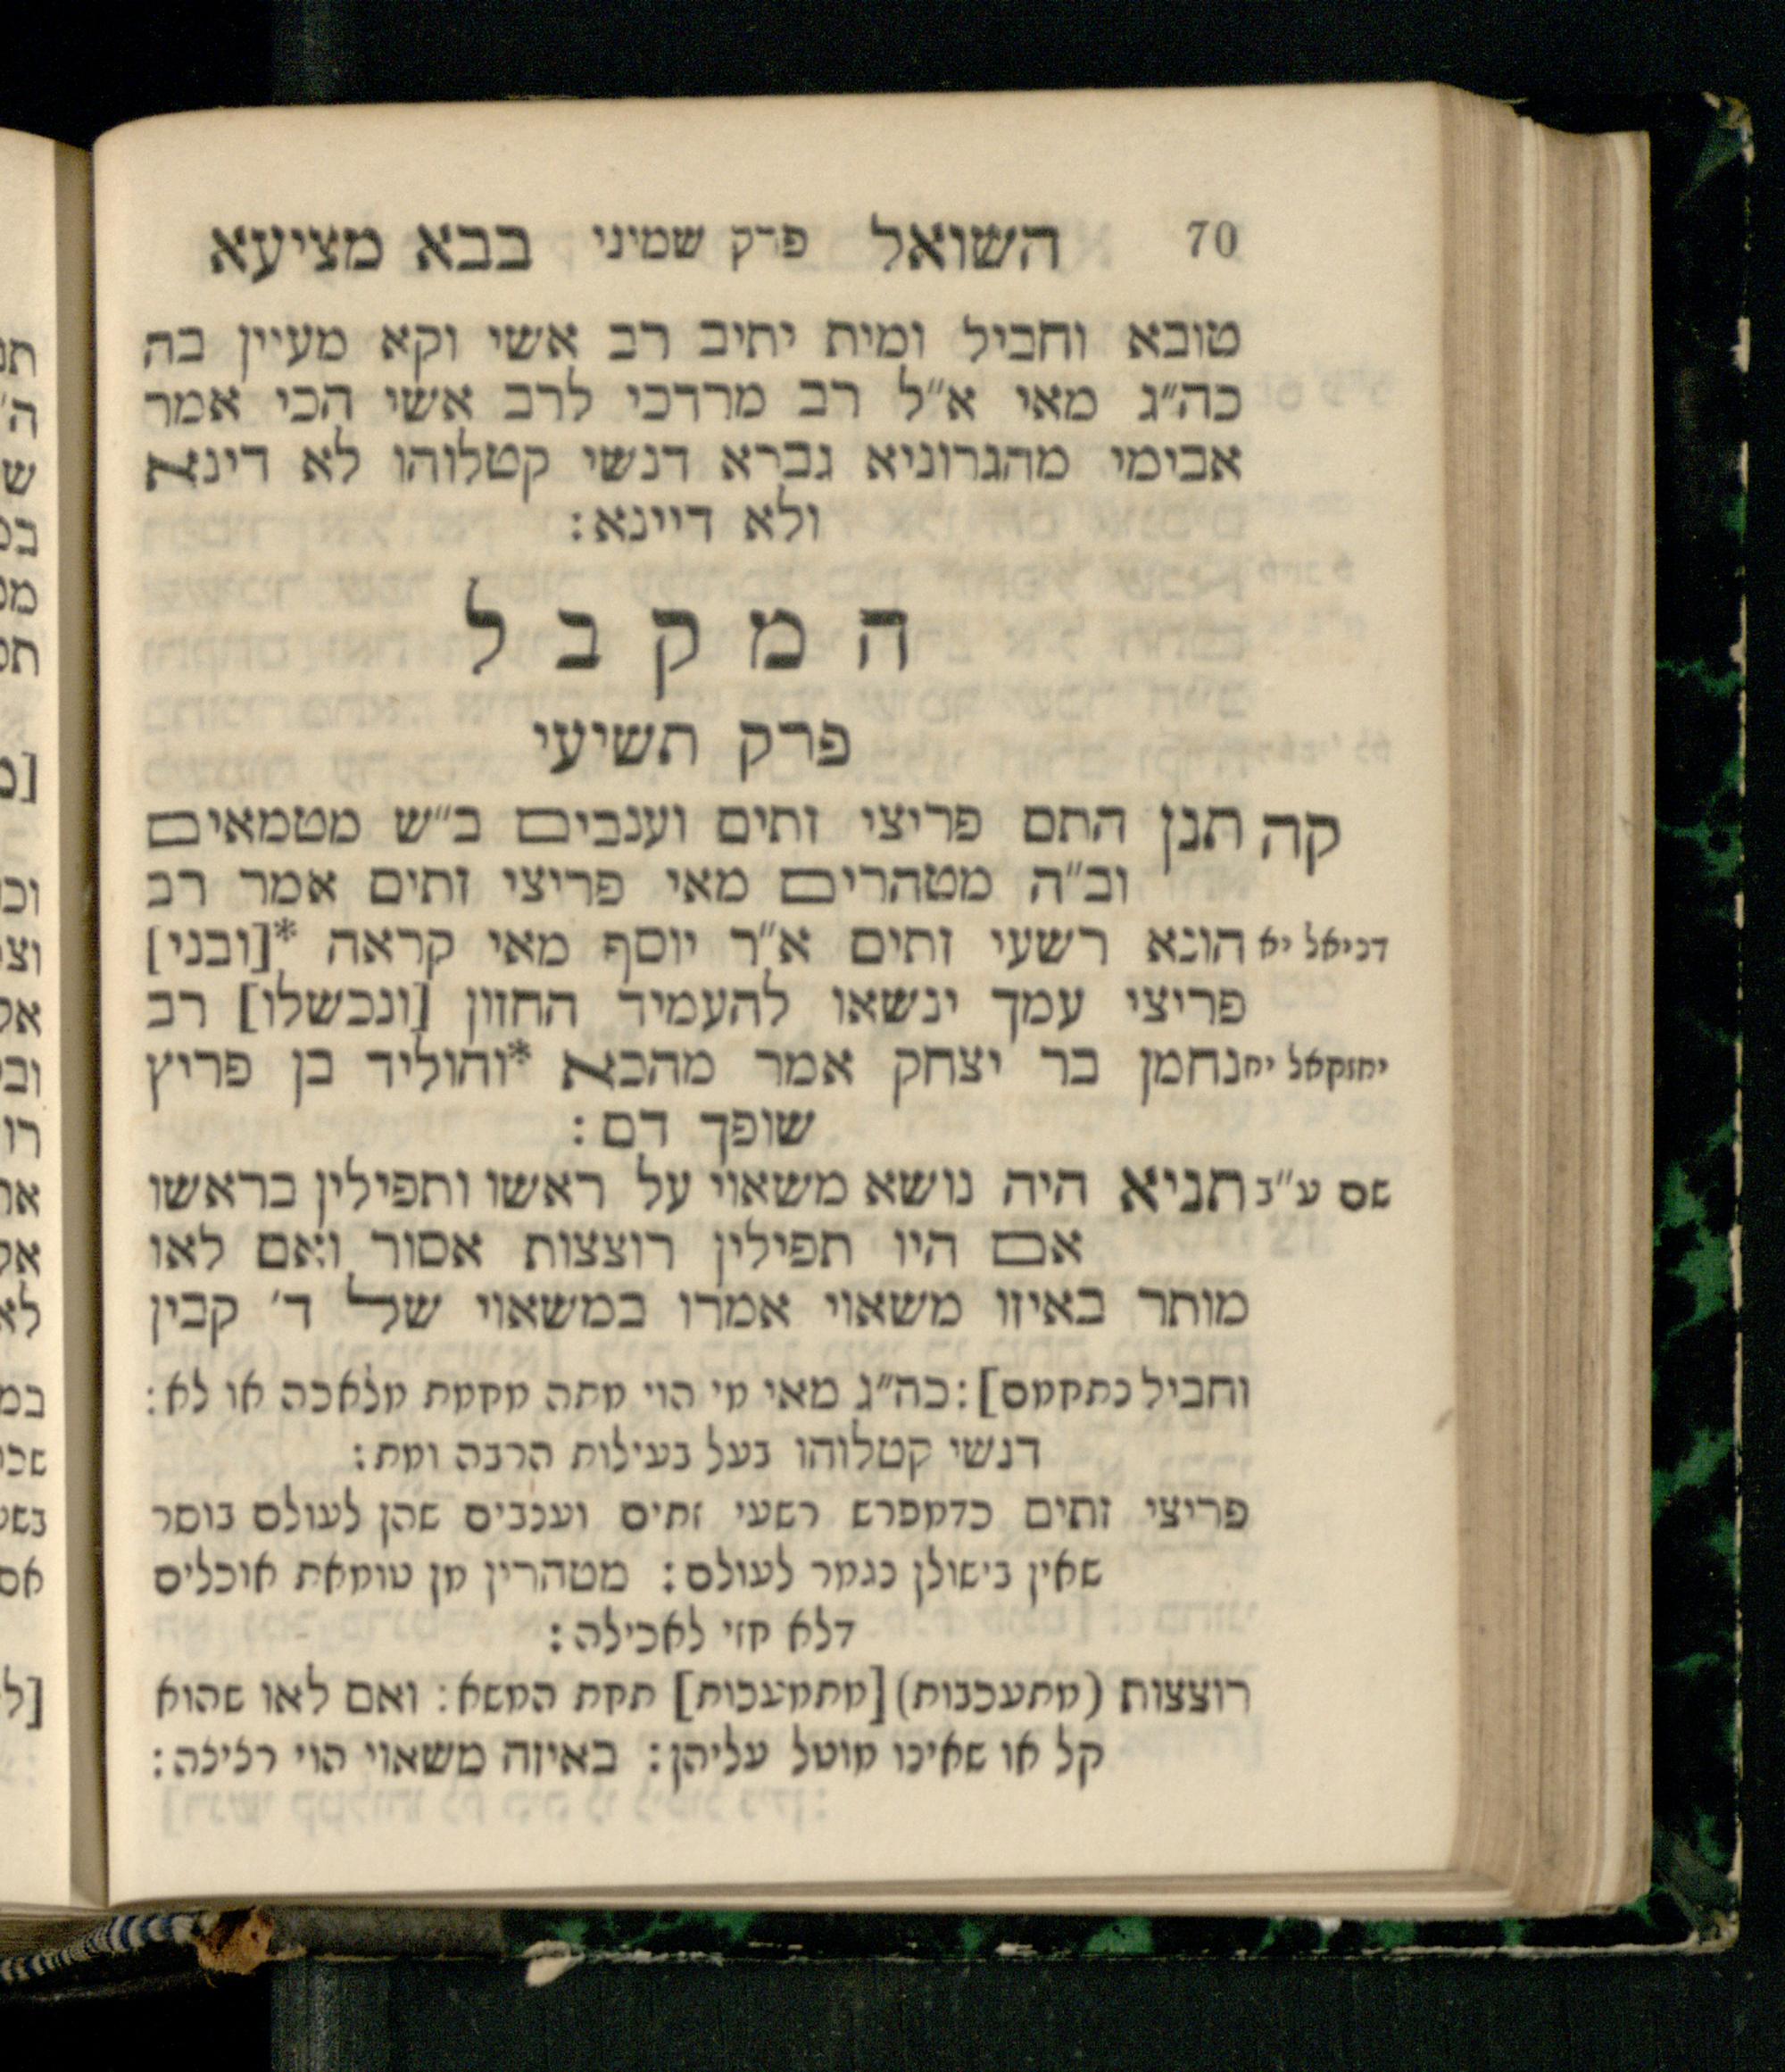 70 השואל פרק שמיני בבא מציעא
טובא וחביל ומית יתיב רב אשי וקא מעיין בה
כה״ג מאי א״ל רב מרדכי לרב אשי הכי אמר
אבימי מהגרוניא גברא דנשי קטלוהו לא דינא
ולא דיינא:
המקבל
פרק תשיעי
קה תנן התם פריצי זתים וענבים ב״ש מטמאים
וב״ה מטהרים מאי פריצי זתים אמר רב
דניאל יא הונא רשעי זתים א״ר יוסף מאי קראה *[ובני]
פריצי עמך ינשאו להעמיד החזון [ונכשלו] רב
יחזקאל יח נחמן בר יצחק אמר מהכא *והוליד בן פריץ
שופך דם:
שם ע״ב תניא היה נושא משאוי על ראשו ותפילין בראשו
אם היו תפילין רוצצות אסור ואם לאו
מותר באיזו משאוי אמרו במשאוי של ד׳ קבין
וחביל נתחמם]: כה״ג מאי מי הוי מתה מחמת מלאכה או לא:
דנשי קטלוהו בעל בעילות הרבה ומת:
פריצי זתים כדמפרש רשעי זתים וענבים שהן לעולם בוסר
שאין בישולן נגמר לעולם: מטהרין מן טומאת אוכלים
דלא חזי לאכילה:
רוצצות (מתעכבות) [מתמעכות] תחת המשא: ואם לאו שהוא
קל או שאינו מוטל עליהן: באיזה משאוי הוי רצינה: